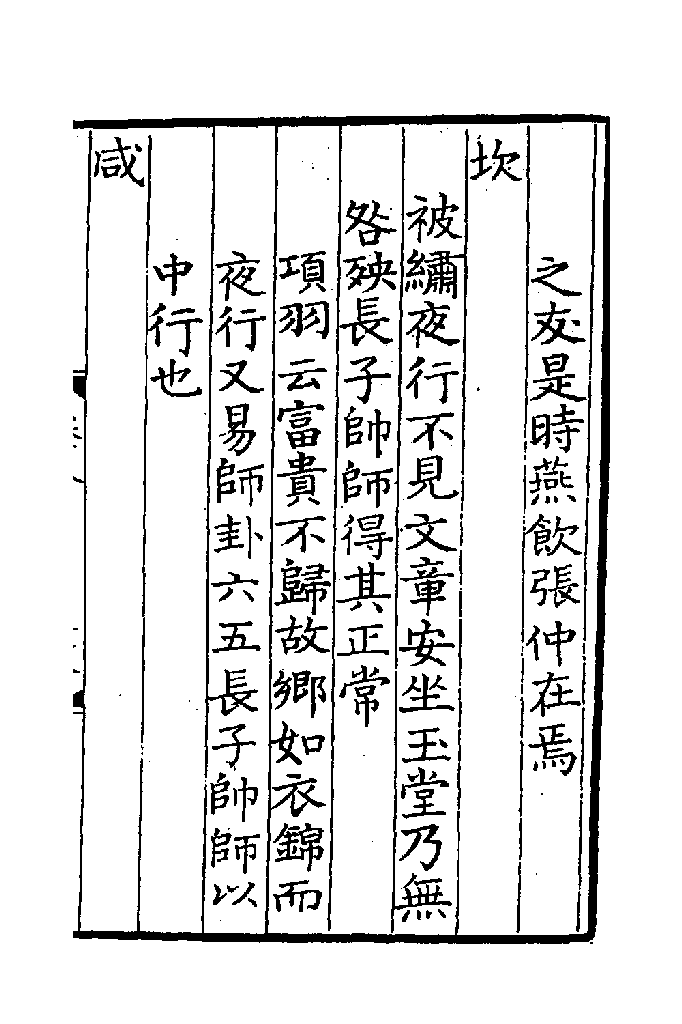 之友是時燕飲張仲在焉
坎
被繡夜行不見文章安坐玉堂乃無
咎殃長子帥師得其正常
項羽云富貴不歸故鄉如衣錦而
夜行又易師卦六五長子帥師以
中行也
咸